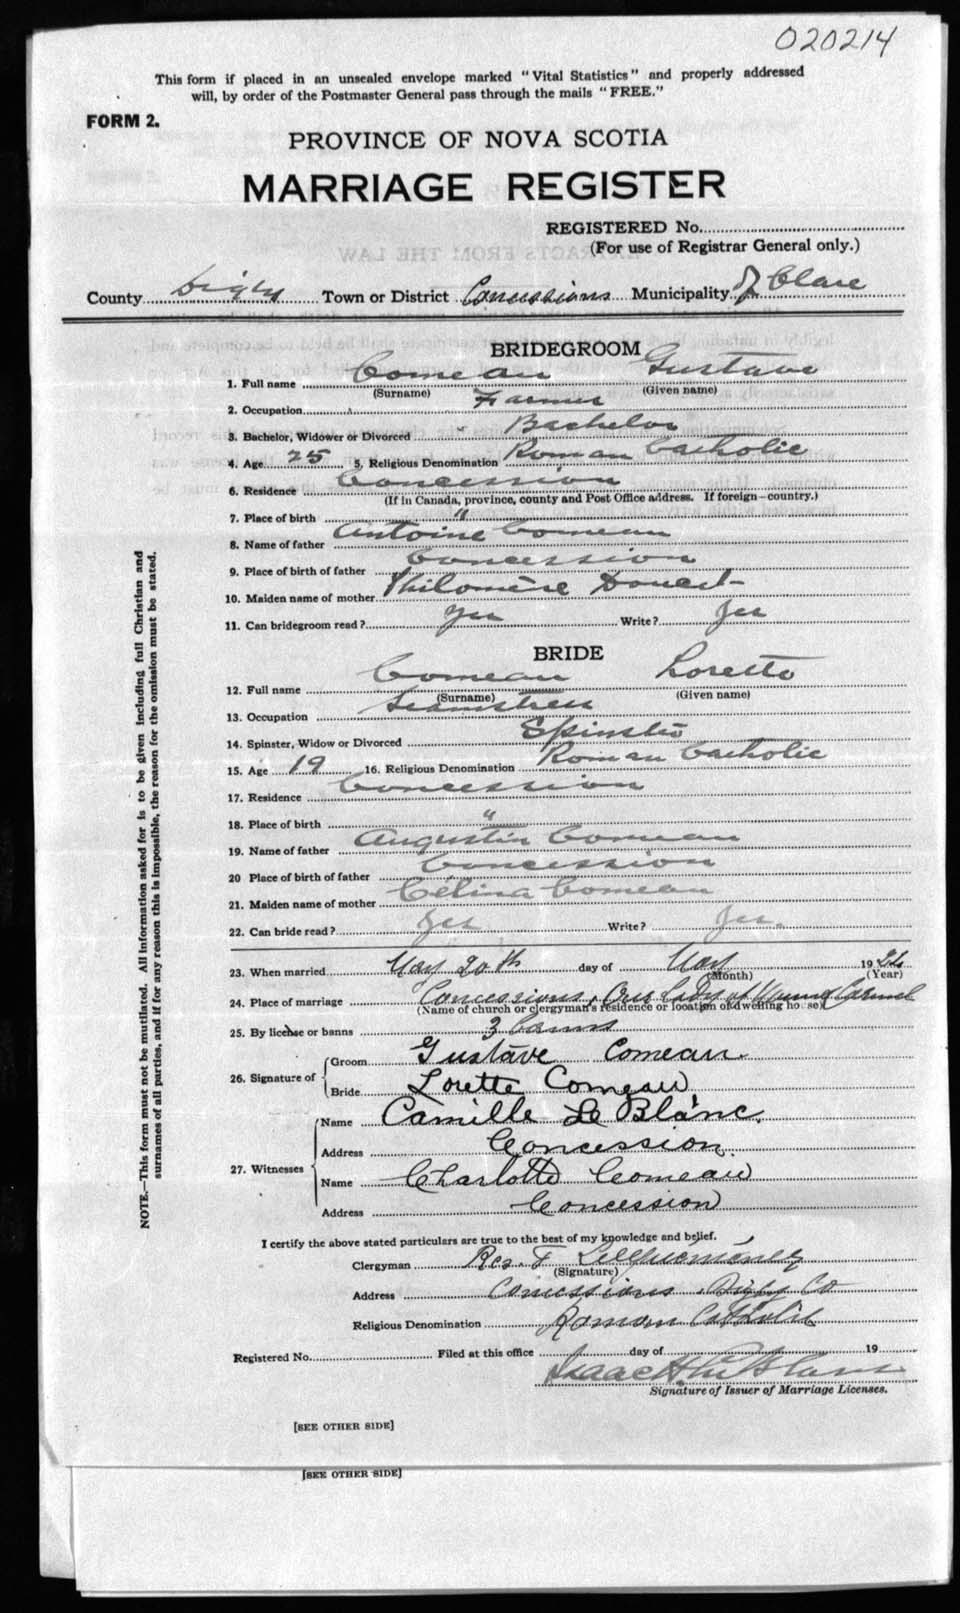 020214
This form if placed in an unsealed envelope marked "Vital Statistics" and properly addressed
will, by order of the Postmaster General pass through the mails "FREE."
FORM 2.
PROVINCE OF NOVA SCOTIA
MARRIAGE REGISTER
REGISTERED No.
(For use of Registrar General only.)
County Digby Town or District Concessions Municipality of Clare
BRIDEGROOM
1. Full name Comeau Gustave
(Surname) (Given name)
2. Occupation Farmer
3. Bachelor, Widower or Divorced Bachelor
4. Age 25 5. Religious Denomination Roman Catholic
6. Residence Concession
(If in Canada, province, county and Post Office address. If foreign—country.)
7. Place of birth "
8. Name of father Antoine Comeau
9. Place of birth of father Concession
10. Maiden name of mother Philomène Doucet
11. Can bridegroom read? Yes Write? Yes
BRIDE
12. Full name Comeau Loretto
(Surname) (Given name)
13. Occupation Seamstress
14. Spinster, Widow or Divorced Spinster
15. Age 19 16. Religious Denomination Roman Catholic
17. Residence Concession
18. Place of birth "
19. Name of father Augustin Comeau
20 Place of birth of father Concession
21. Maiden name of mother Célina Comeau
22. Can bride read? Yes Write? Yes.
23. When married May 20th day of May 19
(Month) (Year)
24. Place of marriage Concessions, Our Lady of Mount Carmel
(Name of church or clergyman's residence or location of dwelling house)
25. By license or banns 3 banns
26. Signature of
Groom Gustave Comeau.
Bride Lorette Comeau
27. Witnesses
Name Camille Le Blanc.
Address Concession.
Name Charlotte Comeau
Address Concession
I certify the above stated particulars are true to the best of my knowledge and belief.
Clergyman Rev. F
(Signature)
Address Concessions, Digby Co
Religious Denomination Roman Catholic
Registered No. Filed at this office day of 19
Isaac H LeBlanc
Signature of Issuer of Marriage Licenses.
[SEE OTHER SIDE]
[SEE OTHER SIDE]
NOTE.—This form must not be mutilated. All information asked for is to be given including full Christian and
surnames of all parties, and if for any reason this is impossible, the reason for the omission must be stated.